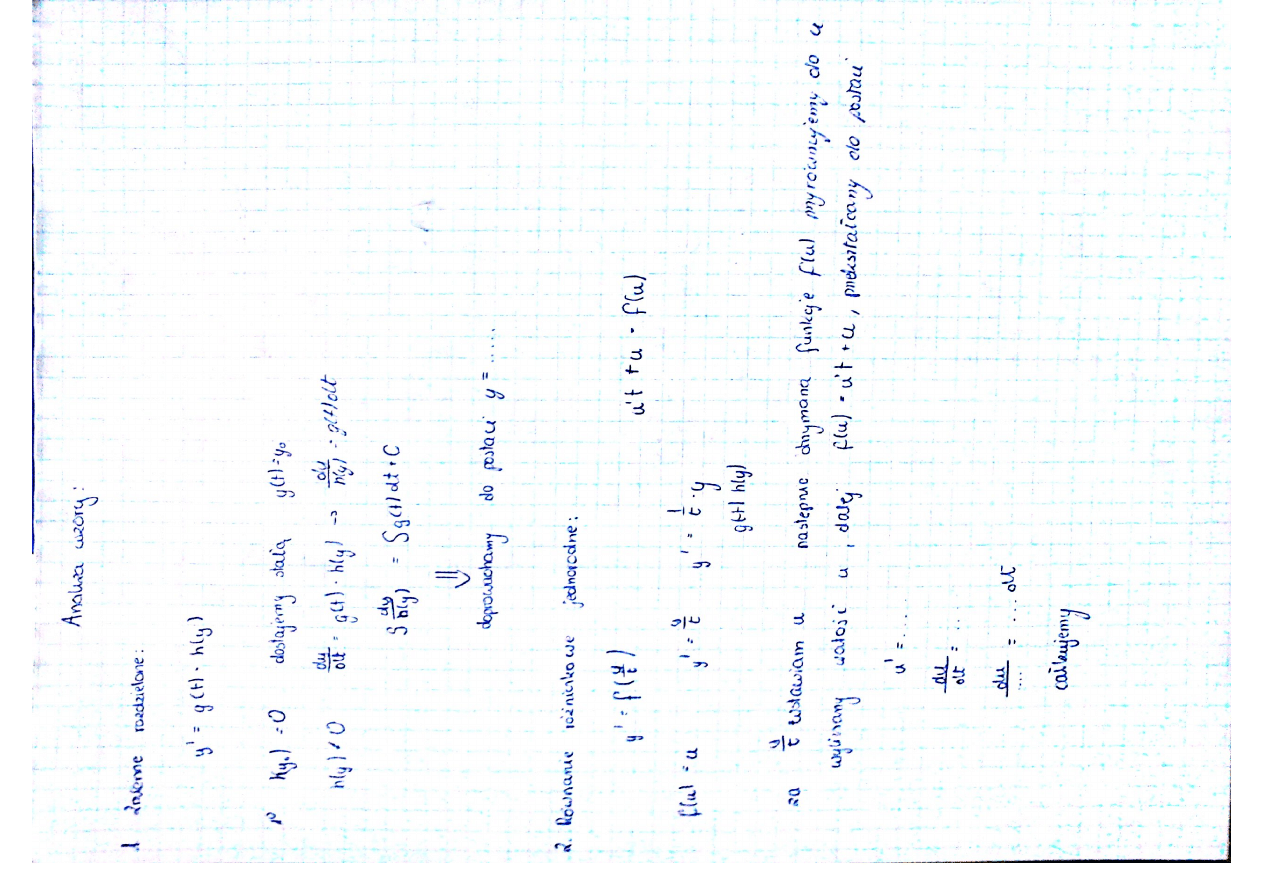 Analiza wzory:
1 zmienne rozdzielone:
y' = g(t) · h(y)
h(y₀) = 0 dostajemy stałą y(t) = y₀
h(y) ≠ 0 dy/dt = g(t) · h(y) → dy/h(y) = g(t)dt
∫ dy/h(y) = ∫ g(t) dt + C
⇓
doprowadzamy do postaci y = .....
2. Równanie różniczkowe jednorodne:
y' = f(y/t) u't + u = f(u)
f(u) = u y' = y/t y' = 1/t · y
g(t) h(y)
za y/t wstawiam u następnie otrzymaną funkcję f(u) przyrównujemy do u
wyliczamy wartość u, dalej f(u) = u't + u, przekształcamy do postaci
u' = ....
du/dt = ...
du/.... = .... dt
całkujemy